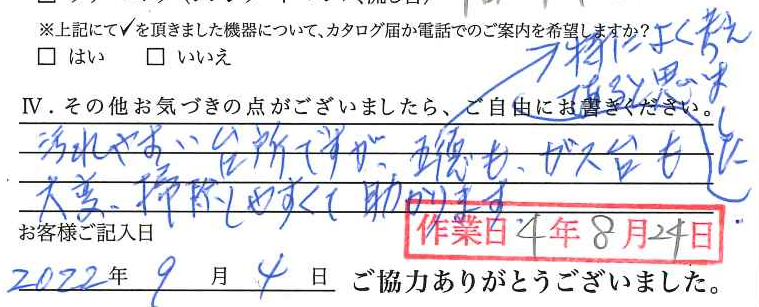 ※上記にて✓を頂きました機器について、カタログ届か電話でのご案内を希望しますか?
□ はい □ いいえ
特によく考え
て有ると思いま
した
Ⅳ.その他お気づきの点がございましたら、ご自由にお書きください。
汚れやすい台所ですが、五徳も、ガス台も
大変、掃除しやすくて助かります。
作業日 4年8月24日
お客様ご記入日
2022年 9月 4日 ご協力ありがとうございました。